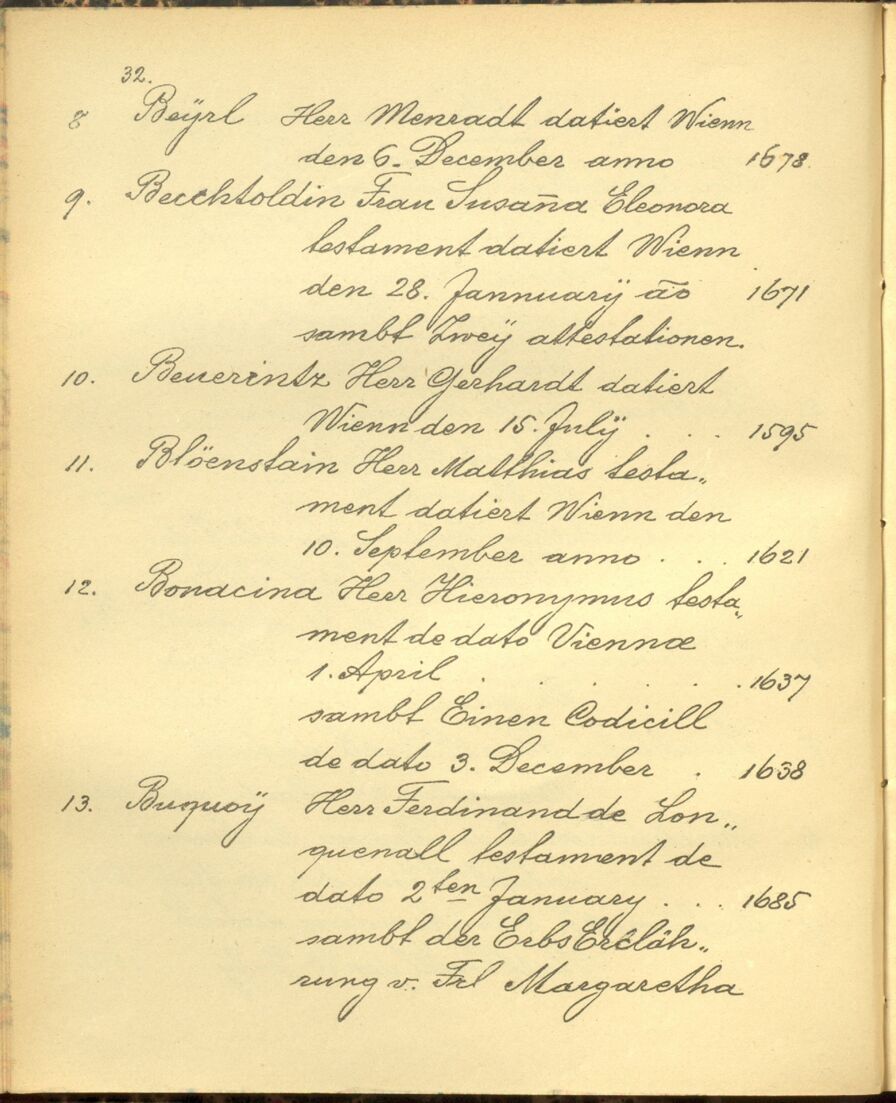 32.
8 Beÿrl Herr Menradt datiert Wienn
den 6. December anno 1678.
9. Becchtoldin Frau Susana̅ Eleonora
testament datiert Wienn
den 28. Jannuarÿ a̅o 1671
sambt Zweÿ attestationen.
10. Beuerintz Herr Gerhardt datiert
Wienn den 15. Julÿ . . . 1595
11. Blöenstain Herr Matthias testa„
ment datiert Wienn den
10. September anno . . . 1621
12. Bonacina Herr Hieronymus testa„
ment de dato Viennæ
1. April . . . . . . 1637
sambt Einen Codicill
de dato 3. December . 1638
13. Buquoÿ Herr Ferdinand de Lon„
quenall testament de
dato 2ten January . . . 1685
sambt der ErbsErcläh„
rung v. Frl Margaretha